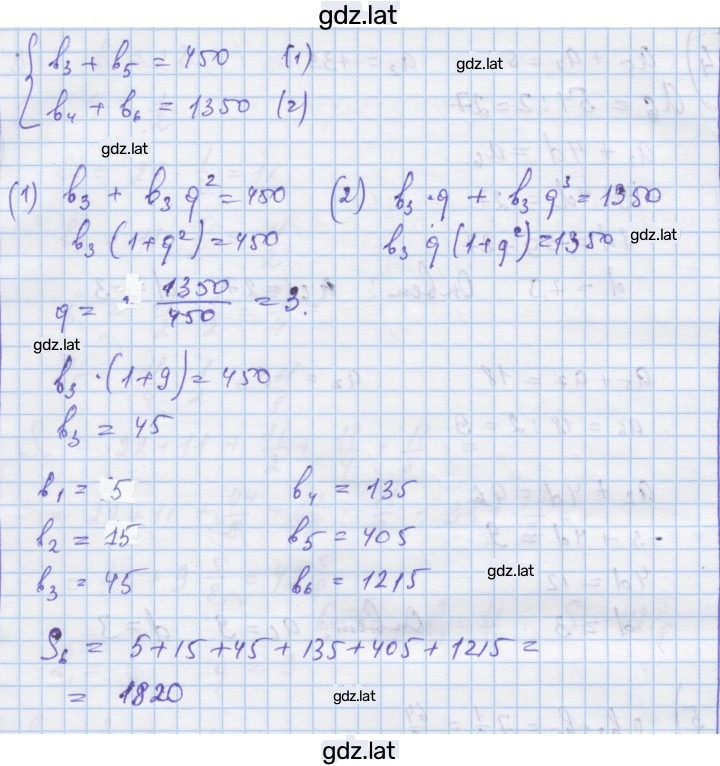 gdz.lat
b₃ + b₅ = 450 (1)
gdz.lat
b₄ + b₆ = 1350 (2)
gdz.lat
(1) b₃ + b₃ q² = 450 (2) b₃ · q + b₃ q³ = 1350
b₃ (1+q²) = 450 b₃ q (1+q²) = 1350
gdz.lat
q = 1350/450 = 3.
gdz.lat
b₃ · (1+9) = 450
b₃ = 45
b₁ = 5 b₄ = 135
b₂ = 15 b₅ = 405
b₃ = 45 b₆ = 1215
gdz.lat
S₆ = 5+15+45+135+405+1215 =
= 1820
gdz.lat
gdz.lat